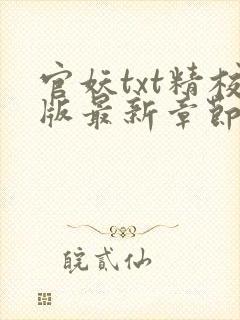 官妖txt精校
版最新章節
皖貳仙